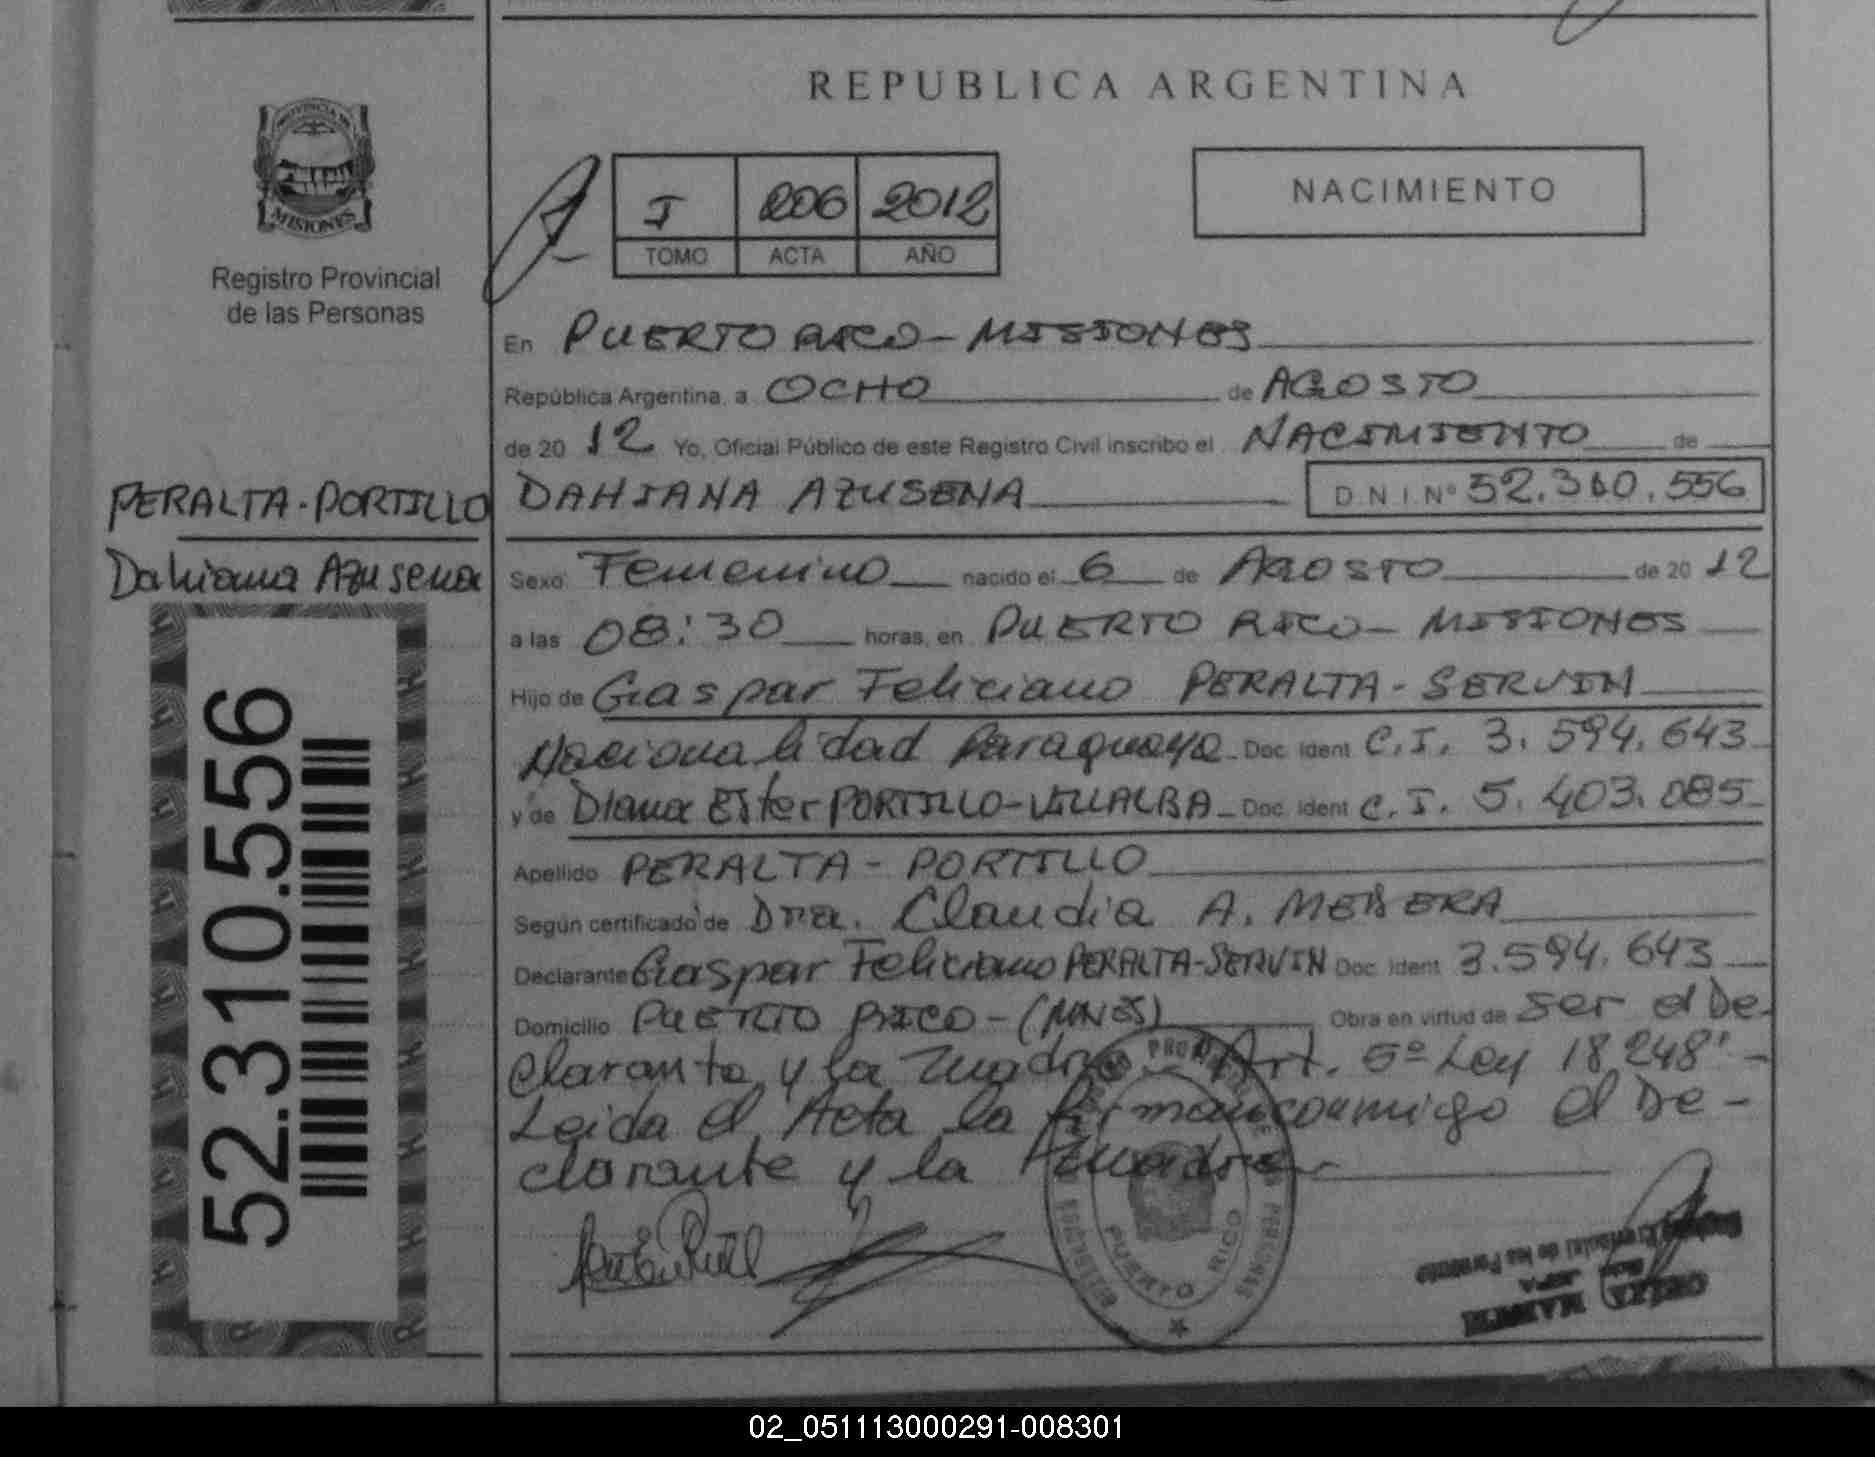 REPUBLICA ARGENTINA
PROVINCIA DE
MISIONES
Registro Provincial
de las Personas
I 206 2012
TOMO ACTA AÑO
NACIMIENTO
En PUERTO RICO - MISIONES
República Argentina, a OCHO de AGOSTO
de 20 12 Yo, Oficial Público de este Registro Civil inscribo el NACIMIENTO de
PERALTA-PORTILLO
DAHIANA AZUSENA D.N.I. Nº 52.310.556
Dahiana Azusena
Sexo Femenino nacido el 6 de AGOSTO de 20 12
a las 08:30 horas, en PUERTO RICO - MISIONES
Hijo de Gaspar Feliciano PERALTA - SERVIN
Nacionalidad Paraguaya Doc. Ident C.I. 3.594.643
y de Diana Ester PORTILLO-VILLALBA Doc. Ident C.I. 5.403.085
Apellido PERALTA - PORTILLO
Según certificado de Dra. Claudia A.
Declarante Gaspar Feliciano PERALTA-SERVIN Doc. Ident 3.594.643
Domicilio PUERTO RICO - (MNES) Obra en virtud de ser el De-
clarante y la madre - Art. 5º Ley 18.248 -
Leida el Acta la firman conmigo el De-
clarante y la madre
52.310.556
PUERTO RICO
Registro Provincial de las Personas
JEFA
02_051113000291-008301